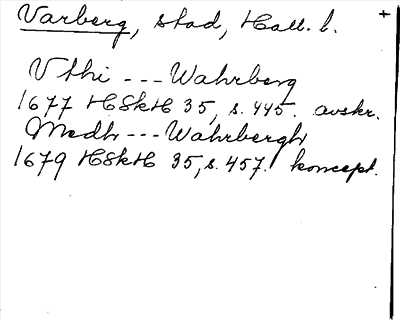 Varberg, stad, Hall. l. +
Vthi --- Wahrberg
1677 HSkH 35, s. 445. avskr.
Medh --- Wahrbergh
1679 HSkH 35, s. 457. koncept.